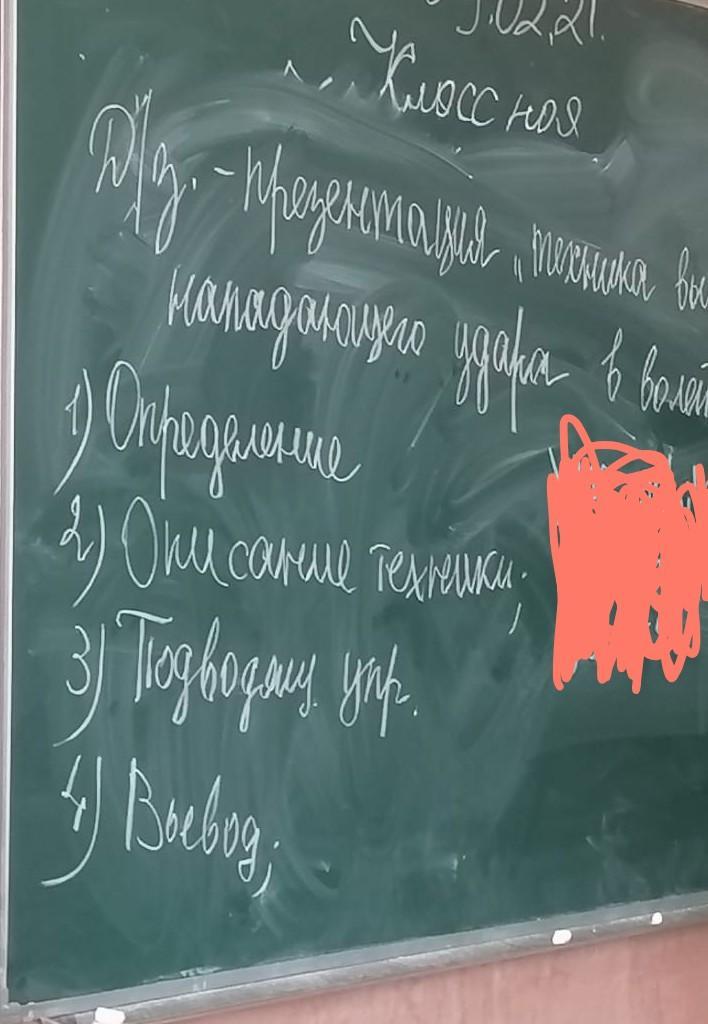 .02.21.
Классная
Д/з. - презентация „техника вы
нападающего удара в волей
1) Определение
2) Описание техники;
3) Подводящ. упр.
4) Вывод;